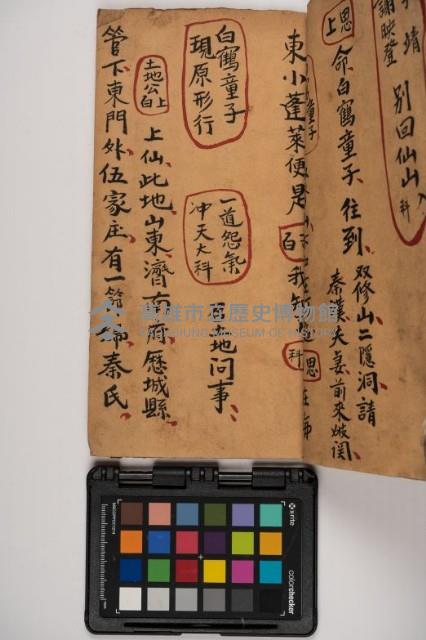 謝映登
別回仙山
科
上思
命白鶴童子往到
双修山二隱洞請
秦漢夫妻前來
東小蓬萊便是
白
科
思
白鶴童子
現原形行
一道怨氣
冲天大科
地问事
土地公上白
上仙此地山東濟
歷城縣
管下東門外伍家庄有一
秦氏
高雄市立歷史博物館
KAOHSIUNG MUSEUM OF HISTORY
x-rite
colorchecker